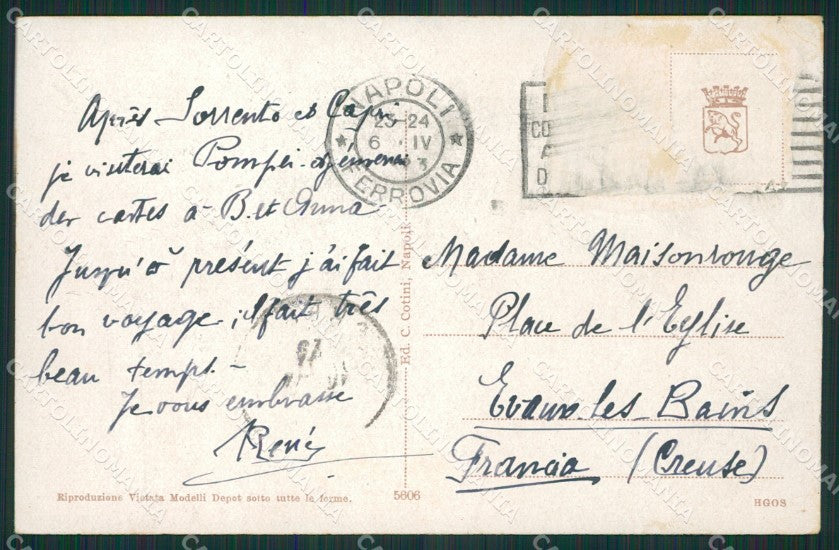 Après Sorrento et Capri
je visiterai Pompéi
des cartes à B. et Anna
Jusqu'à présent j'ai fait
bon voyage, il fait très
beau temps -
Je vous embrasse
René
NAPOLI
23-24
6 IV
FERROVIA
Ed. C. Cotini, Napoli
Madame Maisonrouge
Place de l'Eglise
Evaux-les-Bains
Francia (Creuse)
Riproduzione Vietata Modelli Depot sotto tutte le forme.
5606
HGOS
CARTOLINOMANIA